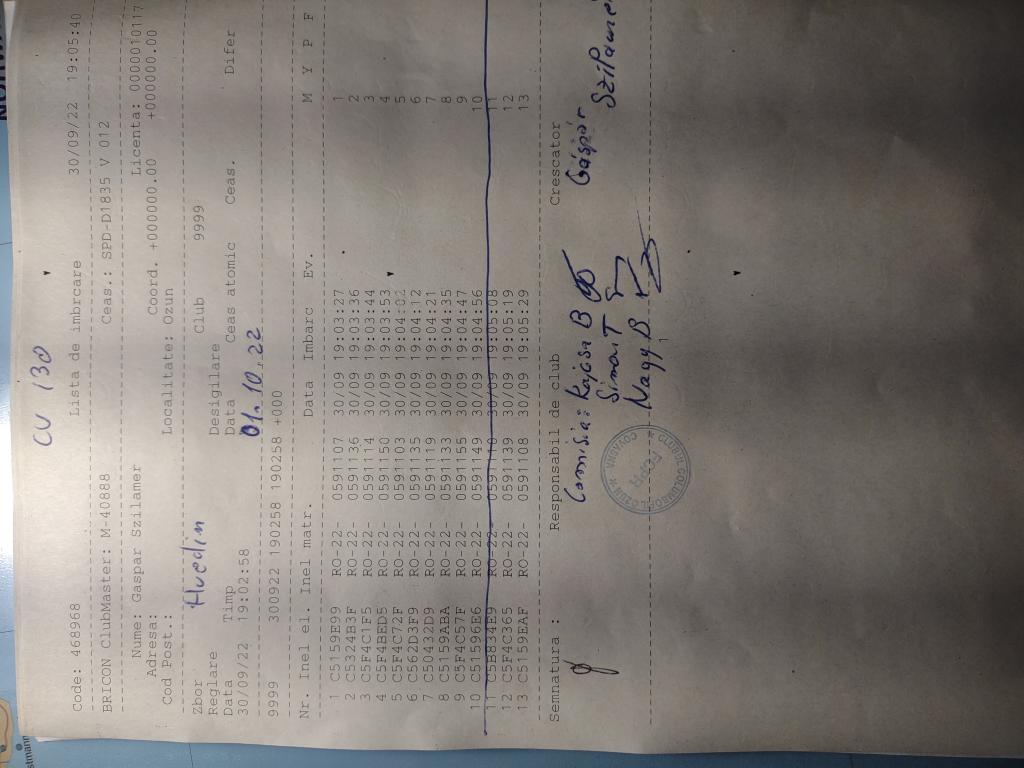 CV 130
Code: 468968 Lista de imbrcare 30/09/22 19:05:40
BRICON ClubMaster: M-40888 Ceas.: SPD-D1835 V 012
Nume: Gaspar Szilamer Licenta: 0000010117
Adresa: Coord. +000000.00 +000000.00
Cod Post.: Localitate: Ozun
Zbor Huedin Club 9999
Reglare Desigilare
Data Timp Data Ceas atomic Ceas. Difer
30/09/22 19:02:58 01.10.22
9999 300922 190258 190258 +000
Nr. Inel el. Inel matr. Data Imbarc Ev. M Y P F
1 C5159E99 RO-22- 0591107 30/09 19:03:27 1
2 C5324B3F RO-22- 0591136 30/09 19:03:36 2
3 C5F4C1F5 RO-22- 0591114 30/09 19:03:44 3
4 C5F4BED5 RO-22- 0591150 30/09 19:03:53 4
5 C5F4C72F RO-22- 0591103 30/09 19:04:02 5
6 C562D3F9 RO-22- 0591135 30/09 19:04:12 6
7 C50432D9 RO-22- 0591119 30/09 19:04:21 7
8 C5159ABA RO-22- 0591133 30/09 19:04:35 8
9 C5F4C57F RO-22- 0591155 30/09 19:04:47 9
10 C51596E6 RO-22- 0591149 30/09 19:04:56 10
11 C5B834E9 RO-22- 30/09 19:05:08 11
12 C5F4C365 RO-22- 0591139 30/09 19:05:19 12
13 C5159EAF RO-22- 0591108 30/09 19:05:29 13
Semnatura : Responsabil de club Crescator
Comisia: Kajcsa B Gáspár Szilamér
Simon T
Nagy B.
1
FCPR
COVASNA